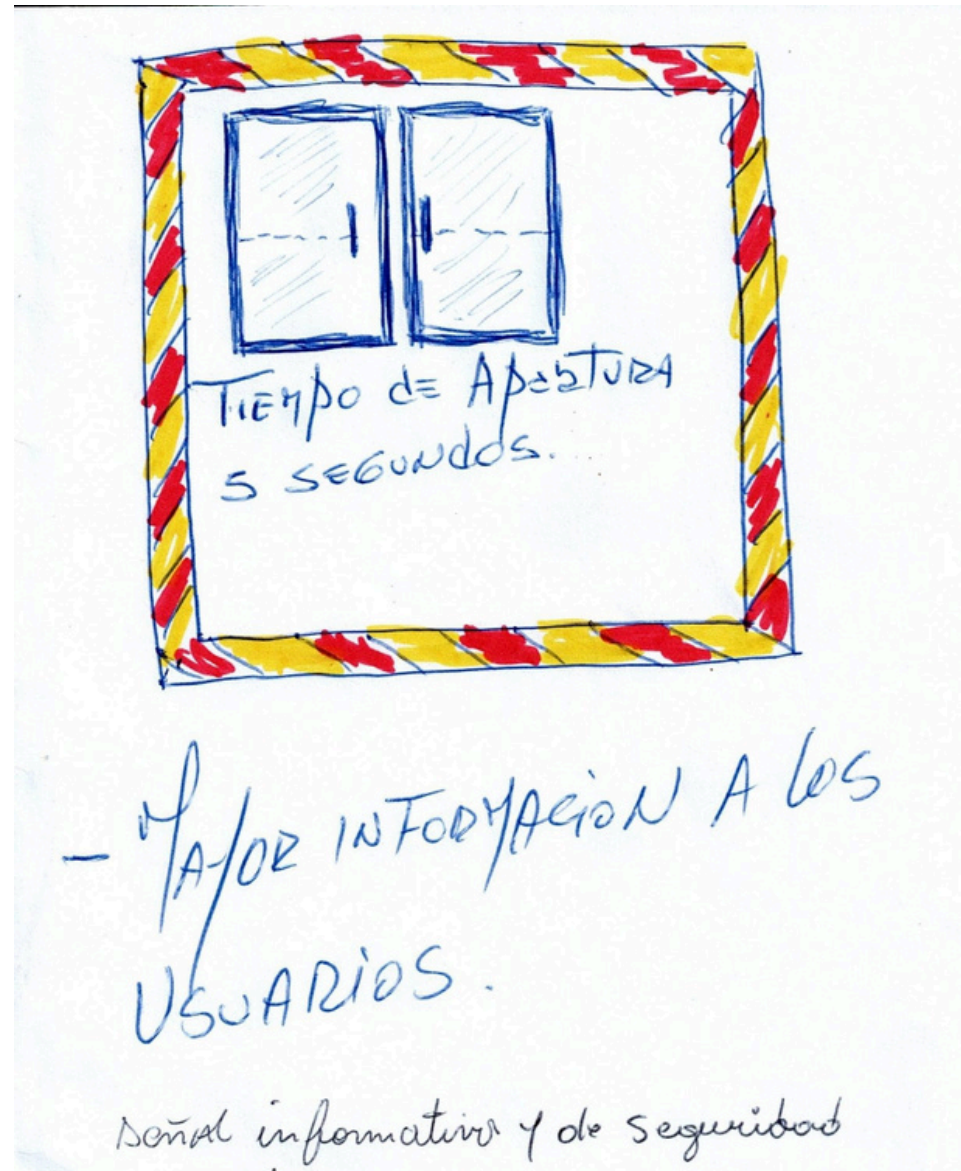 TIEMPO de APERTURA
5 SEGUNdOS.
- MAYOR INFORMACION A LOS
USUARIOS.
señal informativa y de seguridad